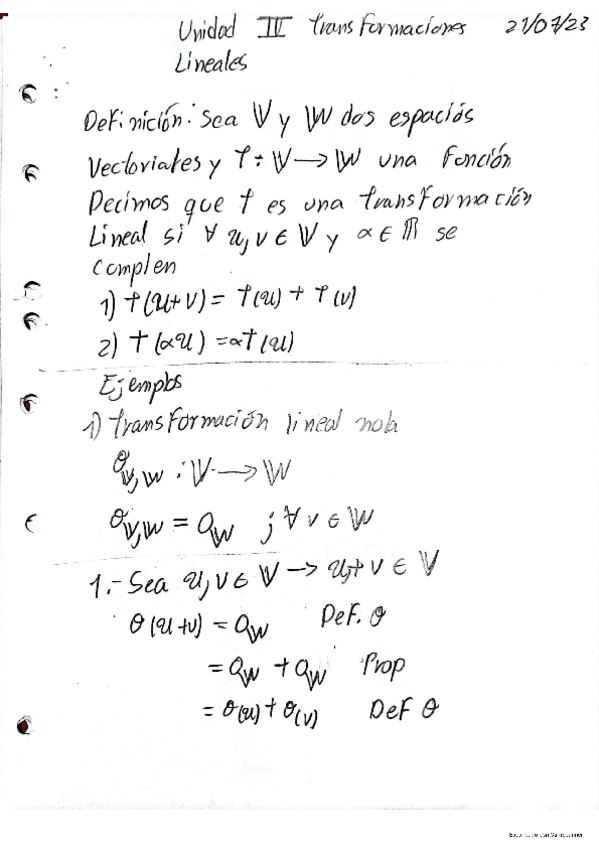 Unidad IV transformaciones 21/07/23
Lineales
Definición: Sea 𝕍 y 𝕎 dos espaciós
Vectoriales y T: 𝕍 → 𝕎 una Función
Decimos que T es una transformación
Lineal si ∀ u,v ∈ 𝕍 y α ∈ ℝ se
complen
1) T(u+v) = T(u) + T(v)
2) T(αu) = αT(u)
Ejemplos
1) transformación lineal nola
θ𝕍,𝕎 : 𝕍 → 𝕎
θ𝕍,𝕎 = 0𝕎 ; ∀ v ∈ 𝕎
1.- Sea u,v ∈ 𝕍 → u+v ∈ 𝕍
θ(u+v) = 0𝕎 Def. θ
= 0𝕎 + 0𝕎 Prop
= θ(u) + θ(v) Def θ